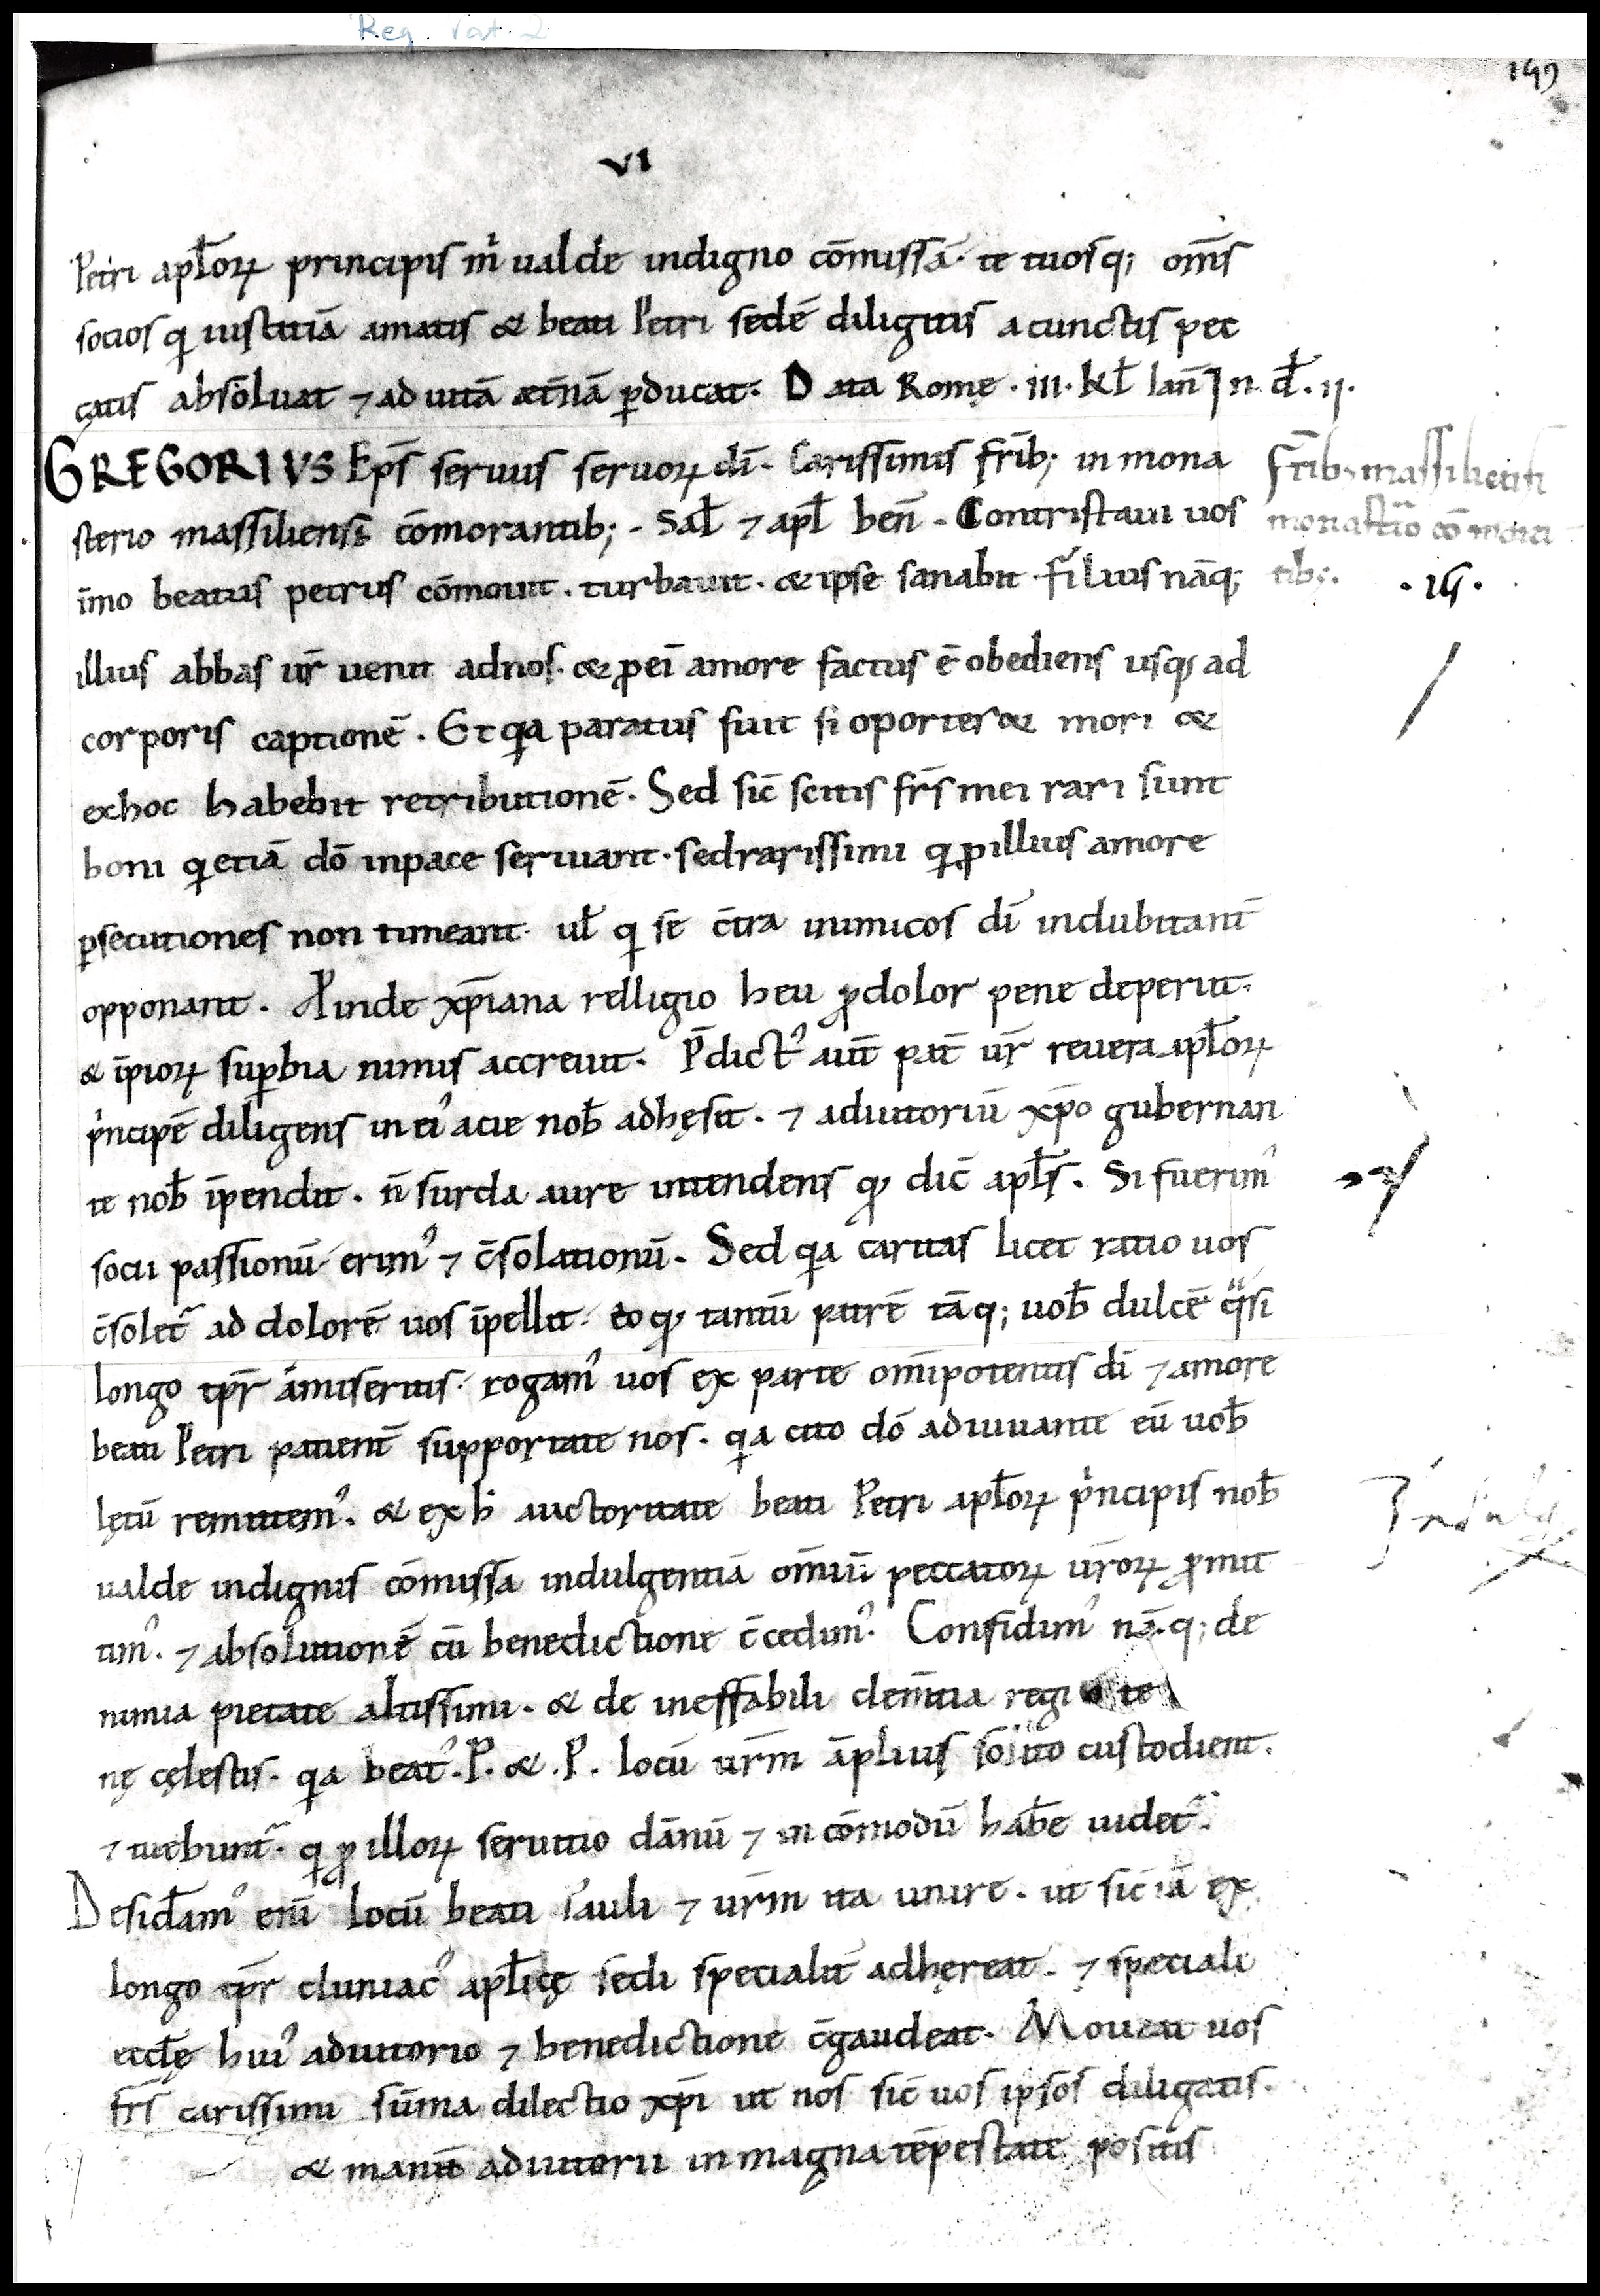 Reg. Vat. 2
149
VI
Petri apl̄oꝝ principis m̄ ualde indigno cōmissā· te tuosq; om̄s
socios q iustitiā amatis & beati Petri sedē diligitis a cunctis pec
catis absoluat ⁊ ad uitā æt̄nā ꝑducat· Data Romę · III · Kl̄ Ian̄ In · d̄ · II ·
GREGORIVS Ep̄s seruus seruoꝝ dī · Carissimis frīb; in mona
sterio massiliensi cōmorantib; · Sal̄ ⁊ apl̄ ben̄ · Contristaui uos
īmo beatus petrus cōmouit · turbauit · & ipse sanabit · filius nāq;
illius abbas ur̄ uenit ad nos · & ꝓ ei amore factus ē obediens usq; ad
corporis captionē · Et qa paratus fuit si oporter& mori &
ex hoc habebit retributionē · Sed sic̄ scitis fr̄s mei rari sunt
boni q etiā dō in pace seruiant · sed rarissimi q ꝓ illius amore
ꝑsecutiones non timeant · ul̄ q se c̄tra inimicos dī indubitant̄
opponant · Ꝓinde xp̄iana relligio heu ꝓdolor pene deperiit ·
& īpioꝝ suꝑbia nimis accreuit · P̄dictꝰ aut̄ pat̄ ur̄ reuera apl̄oꝝ
pͥncipē diligens in eiꝰ acie nob̄ adhęsit · ⁊ adiutoriū xp̄o gubernan
te nob̄ īpendit · n̄ surda aure intendens qđ dic̄ apl̄s · Si fuerimꝰ
socii passionū erimꝰ ⁊ c̄solationū · Sed qa caritas licet ratio uos
c̄solet̃ ad dolorē uos īpellit · eo qđ tantū patrē tāq; uob̄ dulcē qͣsi
longo tp̄r amiseritis · rogamꝰ uos ex parte om̄ipotentis dī ⁊ amore
beati Petri patient̄ supportate nos · qa cito dō adiuuante eū uob̄
lętū remittemꝰ · & ex h̄ auctoritate beati Petri apl̄oꝝ pͥncipis nob̄
ualde indignis cōmissa indulgentiā om̄iū peccatoꝝ ur̄oꝝ ꝓmit
timꝰ · ⁊ absolutionē cū benedictione c̄cedimꝰ · Confidimꝰ nāq; de
nimia pietate altissimi · & de ineffabili clem̄tia regi te
nę cęlestis · qa beatꝰ · P · & · P · locū ur̄m āplius solito custodient ·
⁊ tuebunt̃ · q ꝓ illoꝝ seruitio dānū ⁊ incōmodū hab̄e uidet̃ ·
Desid̄amꝰ eni locū beati Pauli ⁊ ur̄m ita unire · ut sic iā ex
longo tp̄r cluniac̄ꝰ apl̄icę sedi specialit̄ adhęreat · ⁊ speciali
eccl̄ę huiꝰ adiutorio ⁊ benedictione c̄gaudeat · Moueat uos
fr̄s carissimi sūma dilectio xp̄i ut nos sic̄ uos ipsos diligatis ·
& manū adiutorii in magna tēpestate positis
Frīb; massiliensi
monast̄io cōmora
tib; ·
· 15 ·